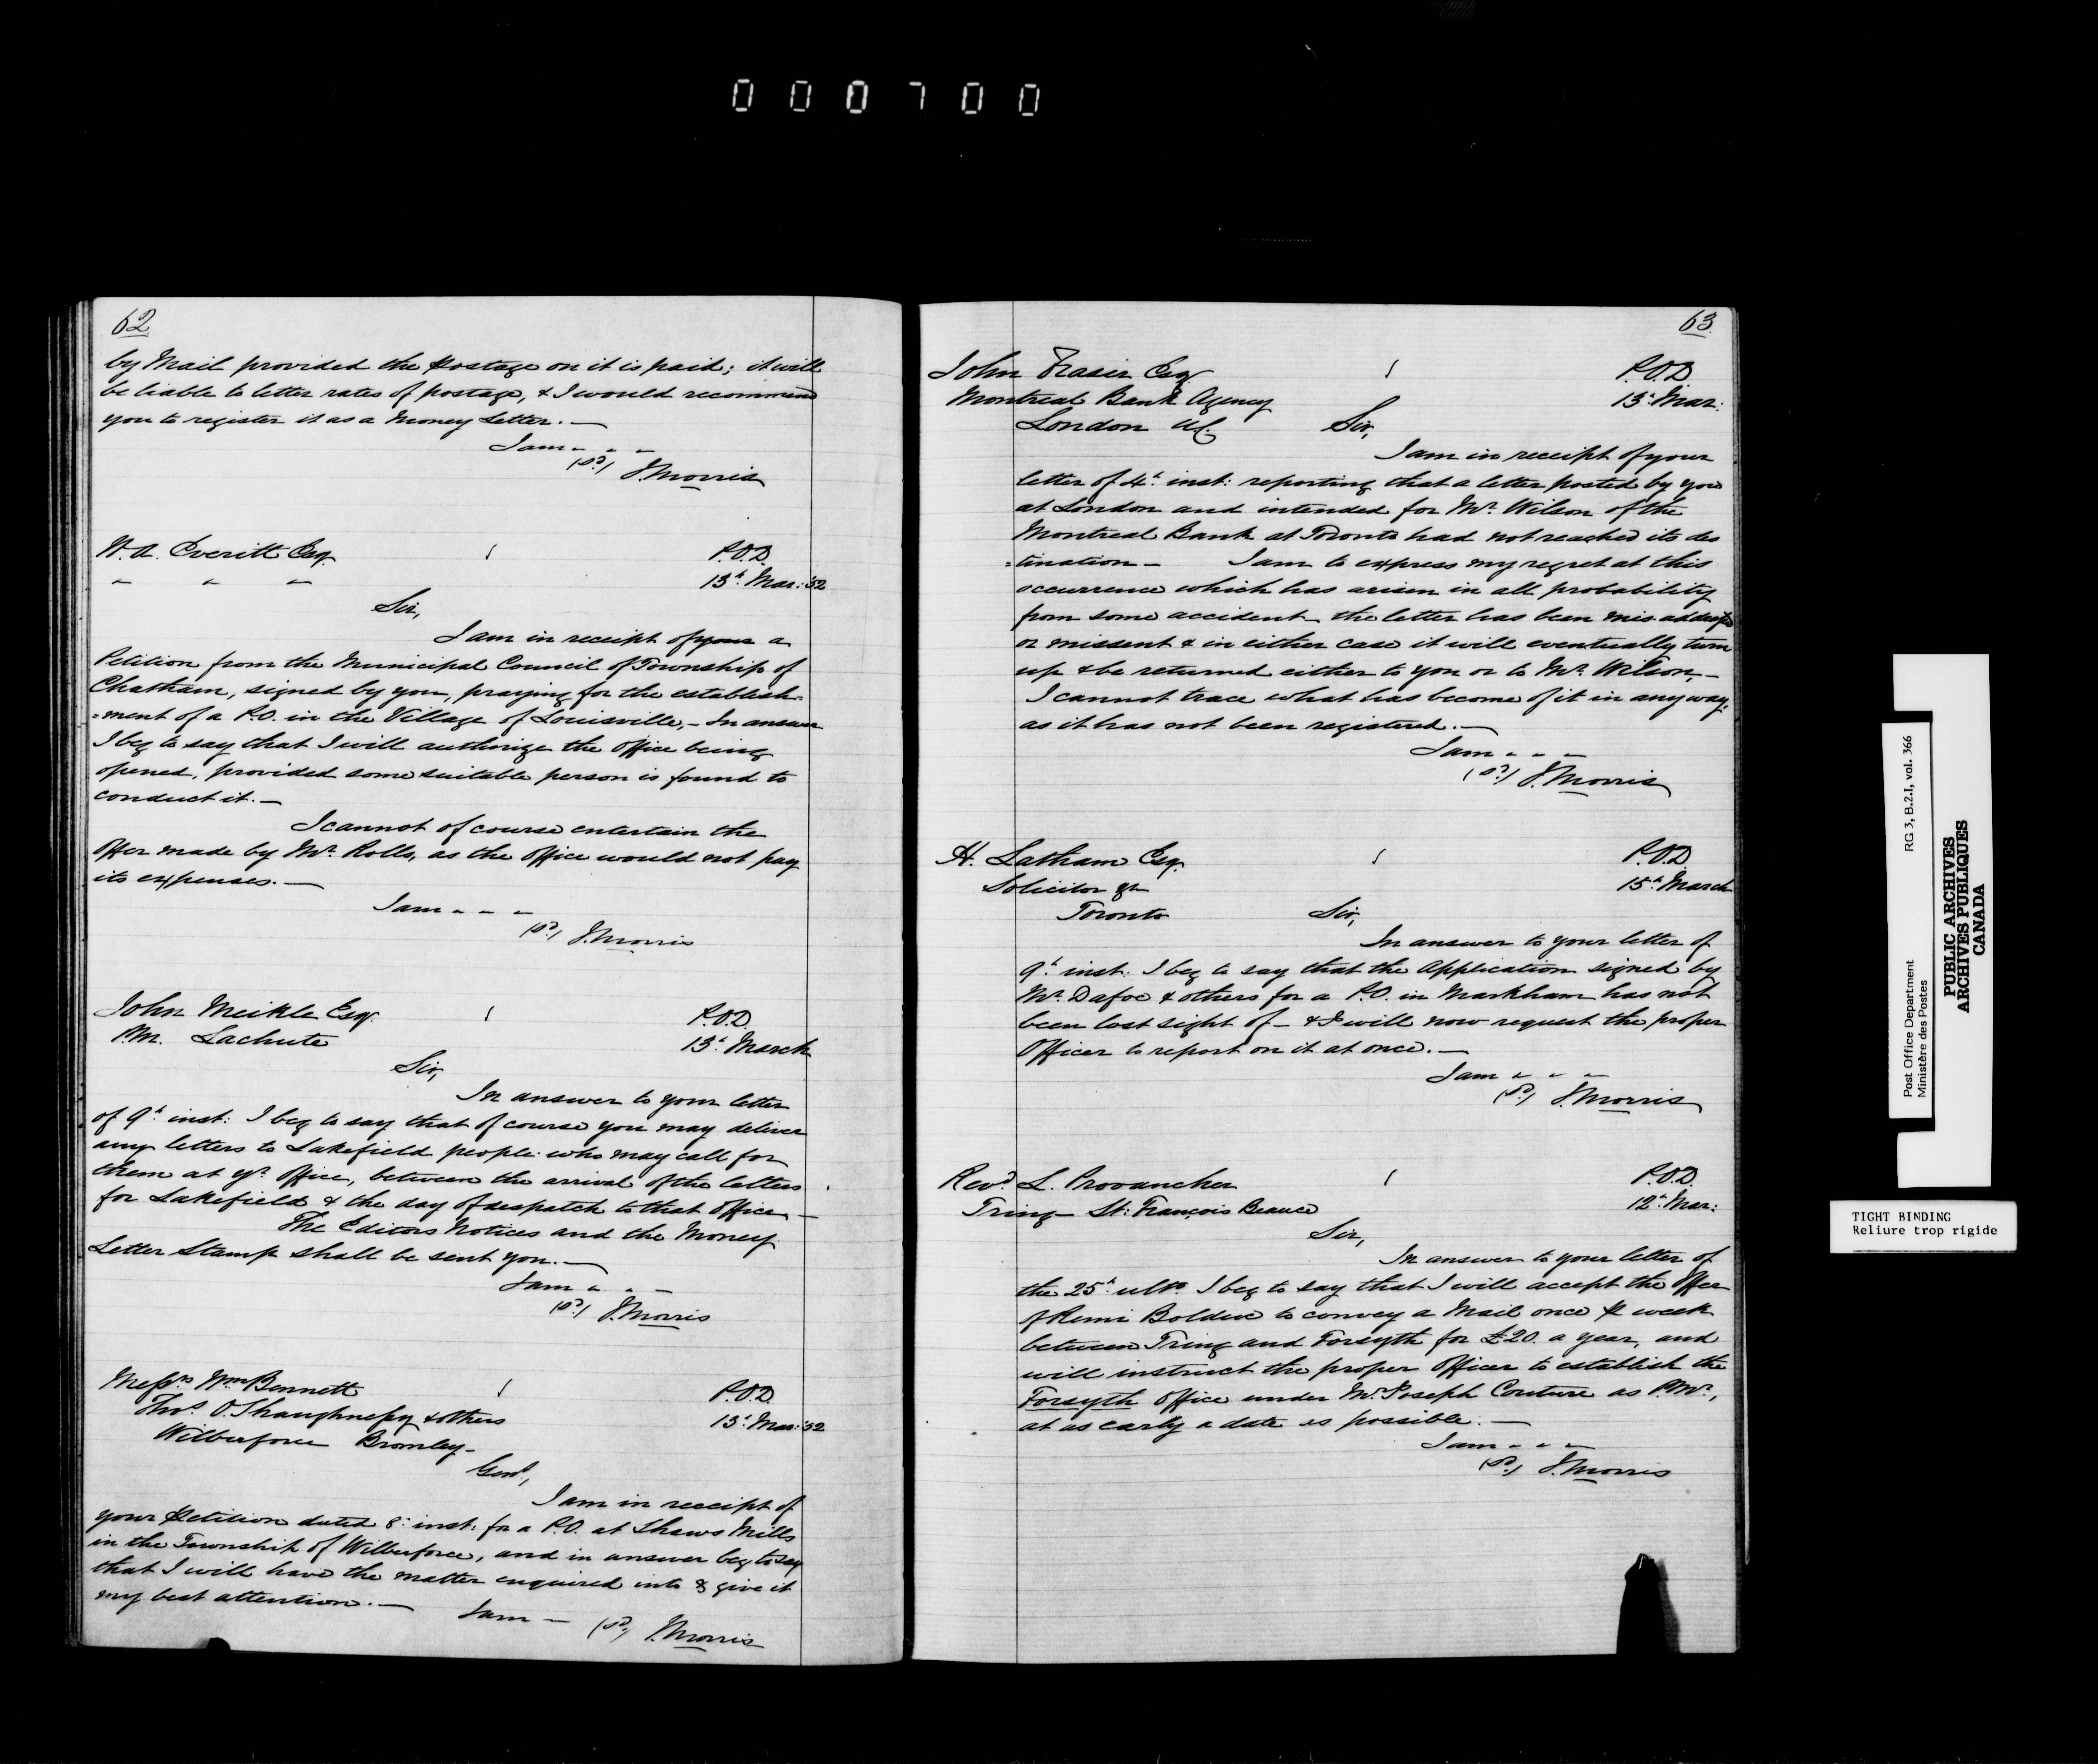 000700
62
by Mail provided the Postage on it is paid; it will
be liable to letter rates of postage, & I would recommend
you to register it as a Money Letter. —
I am - - -
(sd) J. Morris
W. A. Everitt Esq.
P.O.D.
13th Mar: '52
Sir,
I am in receipt of your a
Petition from the Municipal Council of Township of
Chatham, signed by you, praying for the establish=
=ment of a P.O. in the Village of Louisville, – In answer
I beg to say that I will authorize the Office being
opened, provided some suitable person is found to
conduct it. —
I cannot of course entertain the
Offer made by Mr. Rolls, as the Office would not pay
its expenses. —
I am - - -
(sd) J. Morris
John Meikle Esq.
P.O.D.
P.M. Lachute
13th March
Sir,
In answer to your letter
of 9th inst: I beg to say that of course you may deliver
any letters to Lakefield people who may call for
them at yr. Office, between the arrival of the letters
for Lakefield & the day of despatch to that Office —
The Editors Notices and the Money
Letter Stamp shall be sent you. —
I am - - -
(sd) J. Morris
Messrs Wm Bennett
P.O.D.
Thos. O. Shaughnessy & others
13th Mar: '52
Wilberforce Bromley –
Gent,
I am in receipt of
your Petition dated 8th inst: for a P.O. at Shaws Mills
in the Township of Wilberforce, and in answer beg to say
that I will have the matter enquired into & give it
my best attention. —
I am — (sd) J. Morris
63
John Fraser Esq.
P.O.D.
Montreal Bank Agency
13th Mar:
London UC.
Sir,
I am in receipt of your
letter of 4th inst: reporting that a letter posted by you
at London and intended for Mr. Wilson of the
Montreal Bank at Toronto had not reached its des
=tination – I am to express my regret at this
occurrence which has arisen in all probability
from some accident – the letter has been mis addressed
or missent & in either case it will eventually turn
up & be returned either to you or to Mr. Wilson, –
I cannot trace what has become of it in any way,
as it has not been registered. —
I am - - -
(sd) J. Morris
H. Latham Esq.
P.O.D.
Solicitor &c
15th March
Toronto
Sir,
In answer to your letter of
9th inst: I beg to say that the Application signed by
Mr. Dafoe & others for a P.O. in Markham has not
been lost sight of – & I will now request the proper
Officer to report on it at once. —
I am - - -
(sd) J. Morris
Revd. L. Provancher
P.O.D.
Tring – St: François Beauce
12th Mar:
Sir,
In answer to your letter of
the 25th ulto. I beg to say that I will accept the Offer
of Remi Bolduc to convey a Mail once P week
between Tring and Forsyth for £20. a year, and
will instruct the proper Officer to establish the
Forsyth Office under Mr. Joseph Couture as P.Mr.,
at as early a date as possible. —
I am - - -
(sd) J. Morris
Post Office Department
Ministère des Postes
RG 3, B.2.I, vol. 366
PUBLIC ARCHIVES
ARCHIVES PUBLIQUES
CANADA
TIGHT BINDING
Reliure trop rigide